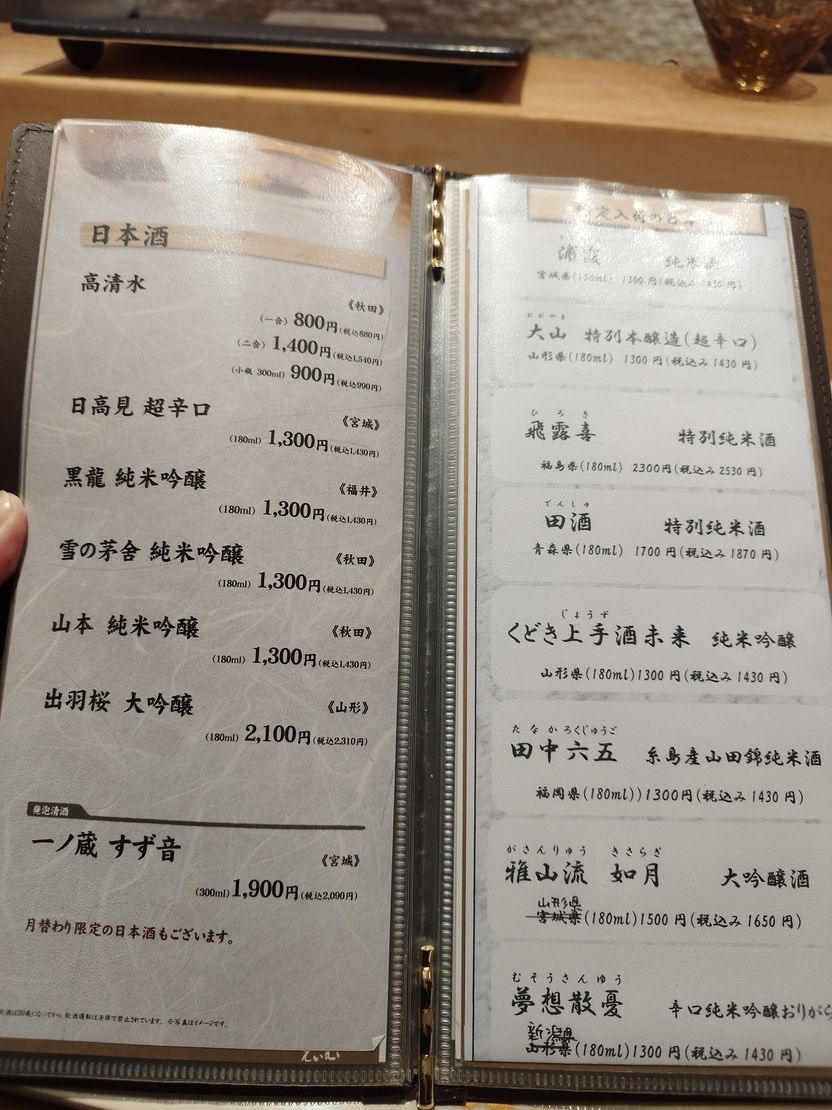 日本酒
高清水
《秋田》
(一合) 800円(税込880円)
(二合) 1,400円(税込1,540円)
(小瓶 300ml) 900円(税込990円)
日高見 超辛口
《宮城》
(180ml) 1,300円(税込1,430円)
黒龍 純米吟醸
《福井》
(180ml) 1,300円(税込1,430円)
雪の茅舎 純米吟醸
《秋田》
(180ml) 1,300円(税込1,430円)
山本 純米吟醸
《秋田》
(180ml) 1,300円(税込1,430円)
出羽桜 大吟醸
《山形》
(180ml) 2,100円(税込2,310円)
発泡清酒
一ノ蔵 すず音
《宮城》
(300ml) 1,900円(税込2,090円)
月替わり限定の日本酒もございます。
飲酒は20歳になってから。飲酒運転は法律で禁止されています。 ※写真はイメージです。
定入荷の日本
浦霞 純米酒
宮城県(180ml) 1300円(税込み1430円)
おおやま
大山 特別本醸造(超辛口)
山形県(180ml) 1300円(税込み1430円)
ひろき
飛露喜 特別純米酒
福島県(180ml) 2300円(税込み2530円)
でんしゅ
田酒 特別純米酒
青森県(180ml) 1700円(税込み1870円)
じょうず
くどき上手酒未来 純米吟醸
山形県(180ml)1300円(税込み1430円)
たなかろくじゅうご
田中六五 糸島産山田錦純米酒
福岡県(180ml))1300円(税込み1430円)
がさんりゅう きさらぎ
雅山流 如月 大吟醸酒
山形県
宮城県(180ml)1500円(税込み1650円)
むそうさんゆう
夢想散憂 辛口純米吟醸おりがら
新潟県
山形県(180ml)1300円(税込み1430円)